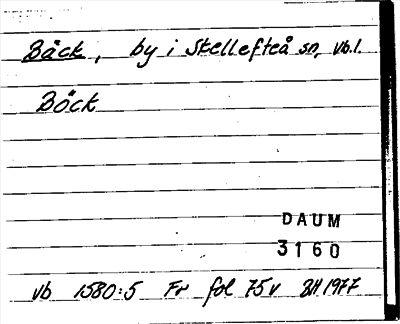 Bäck, by i Skellefteå sn, vb.l.
Böck
DAUM
3160
vb 1580:5 Fr fol 75v BH 1977